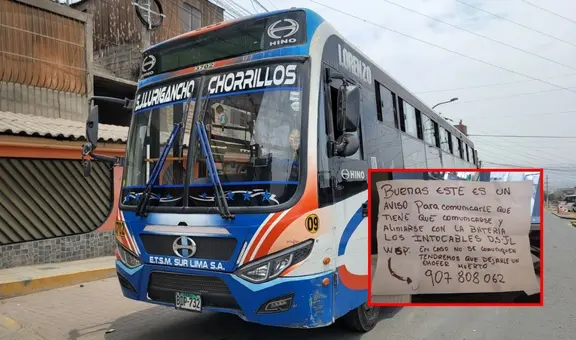 HINO
HINO
3702
LORENZO
S.J.LURIGANCHO CHORRILLOS
HINO
09
HINO
E.T.S.M. SUR LIMA S.A.
BUENAS ESTE ES UN
AVISO Para comunicarle que
TIENE QUE comunicarse y
ALINIARSE CON LA BATERÍA
LOS INTOCABLES D.SJL
EN CASO NO SE comuniquen
TENDREMOS QUE DEJARLE UN
CHOFER MUERTO
907 808 062